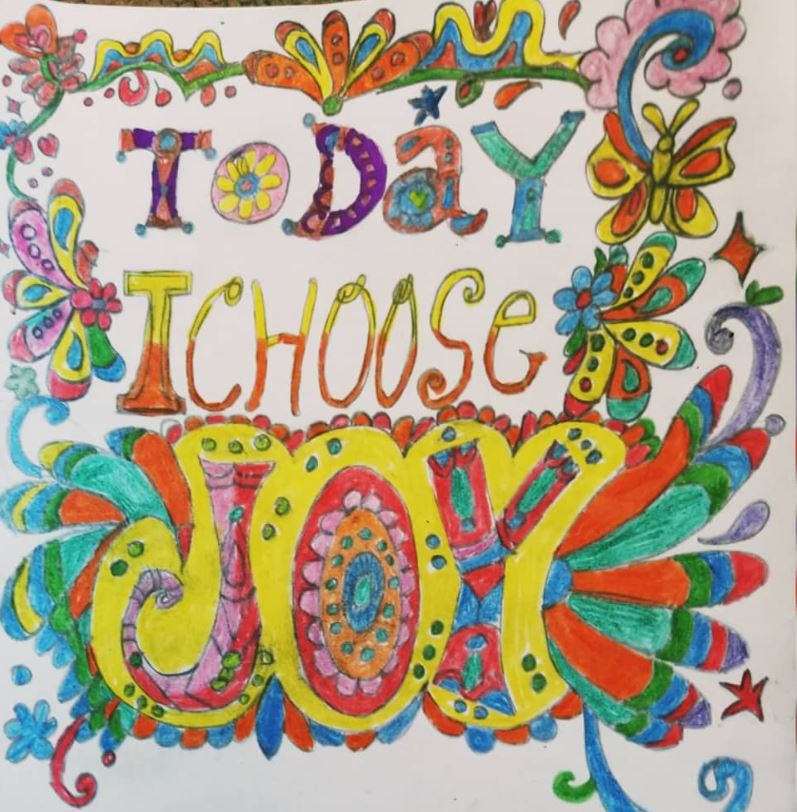 ToDaY
I CHOOSe
JOY